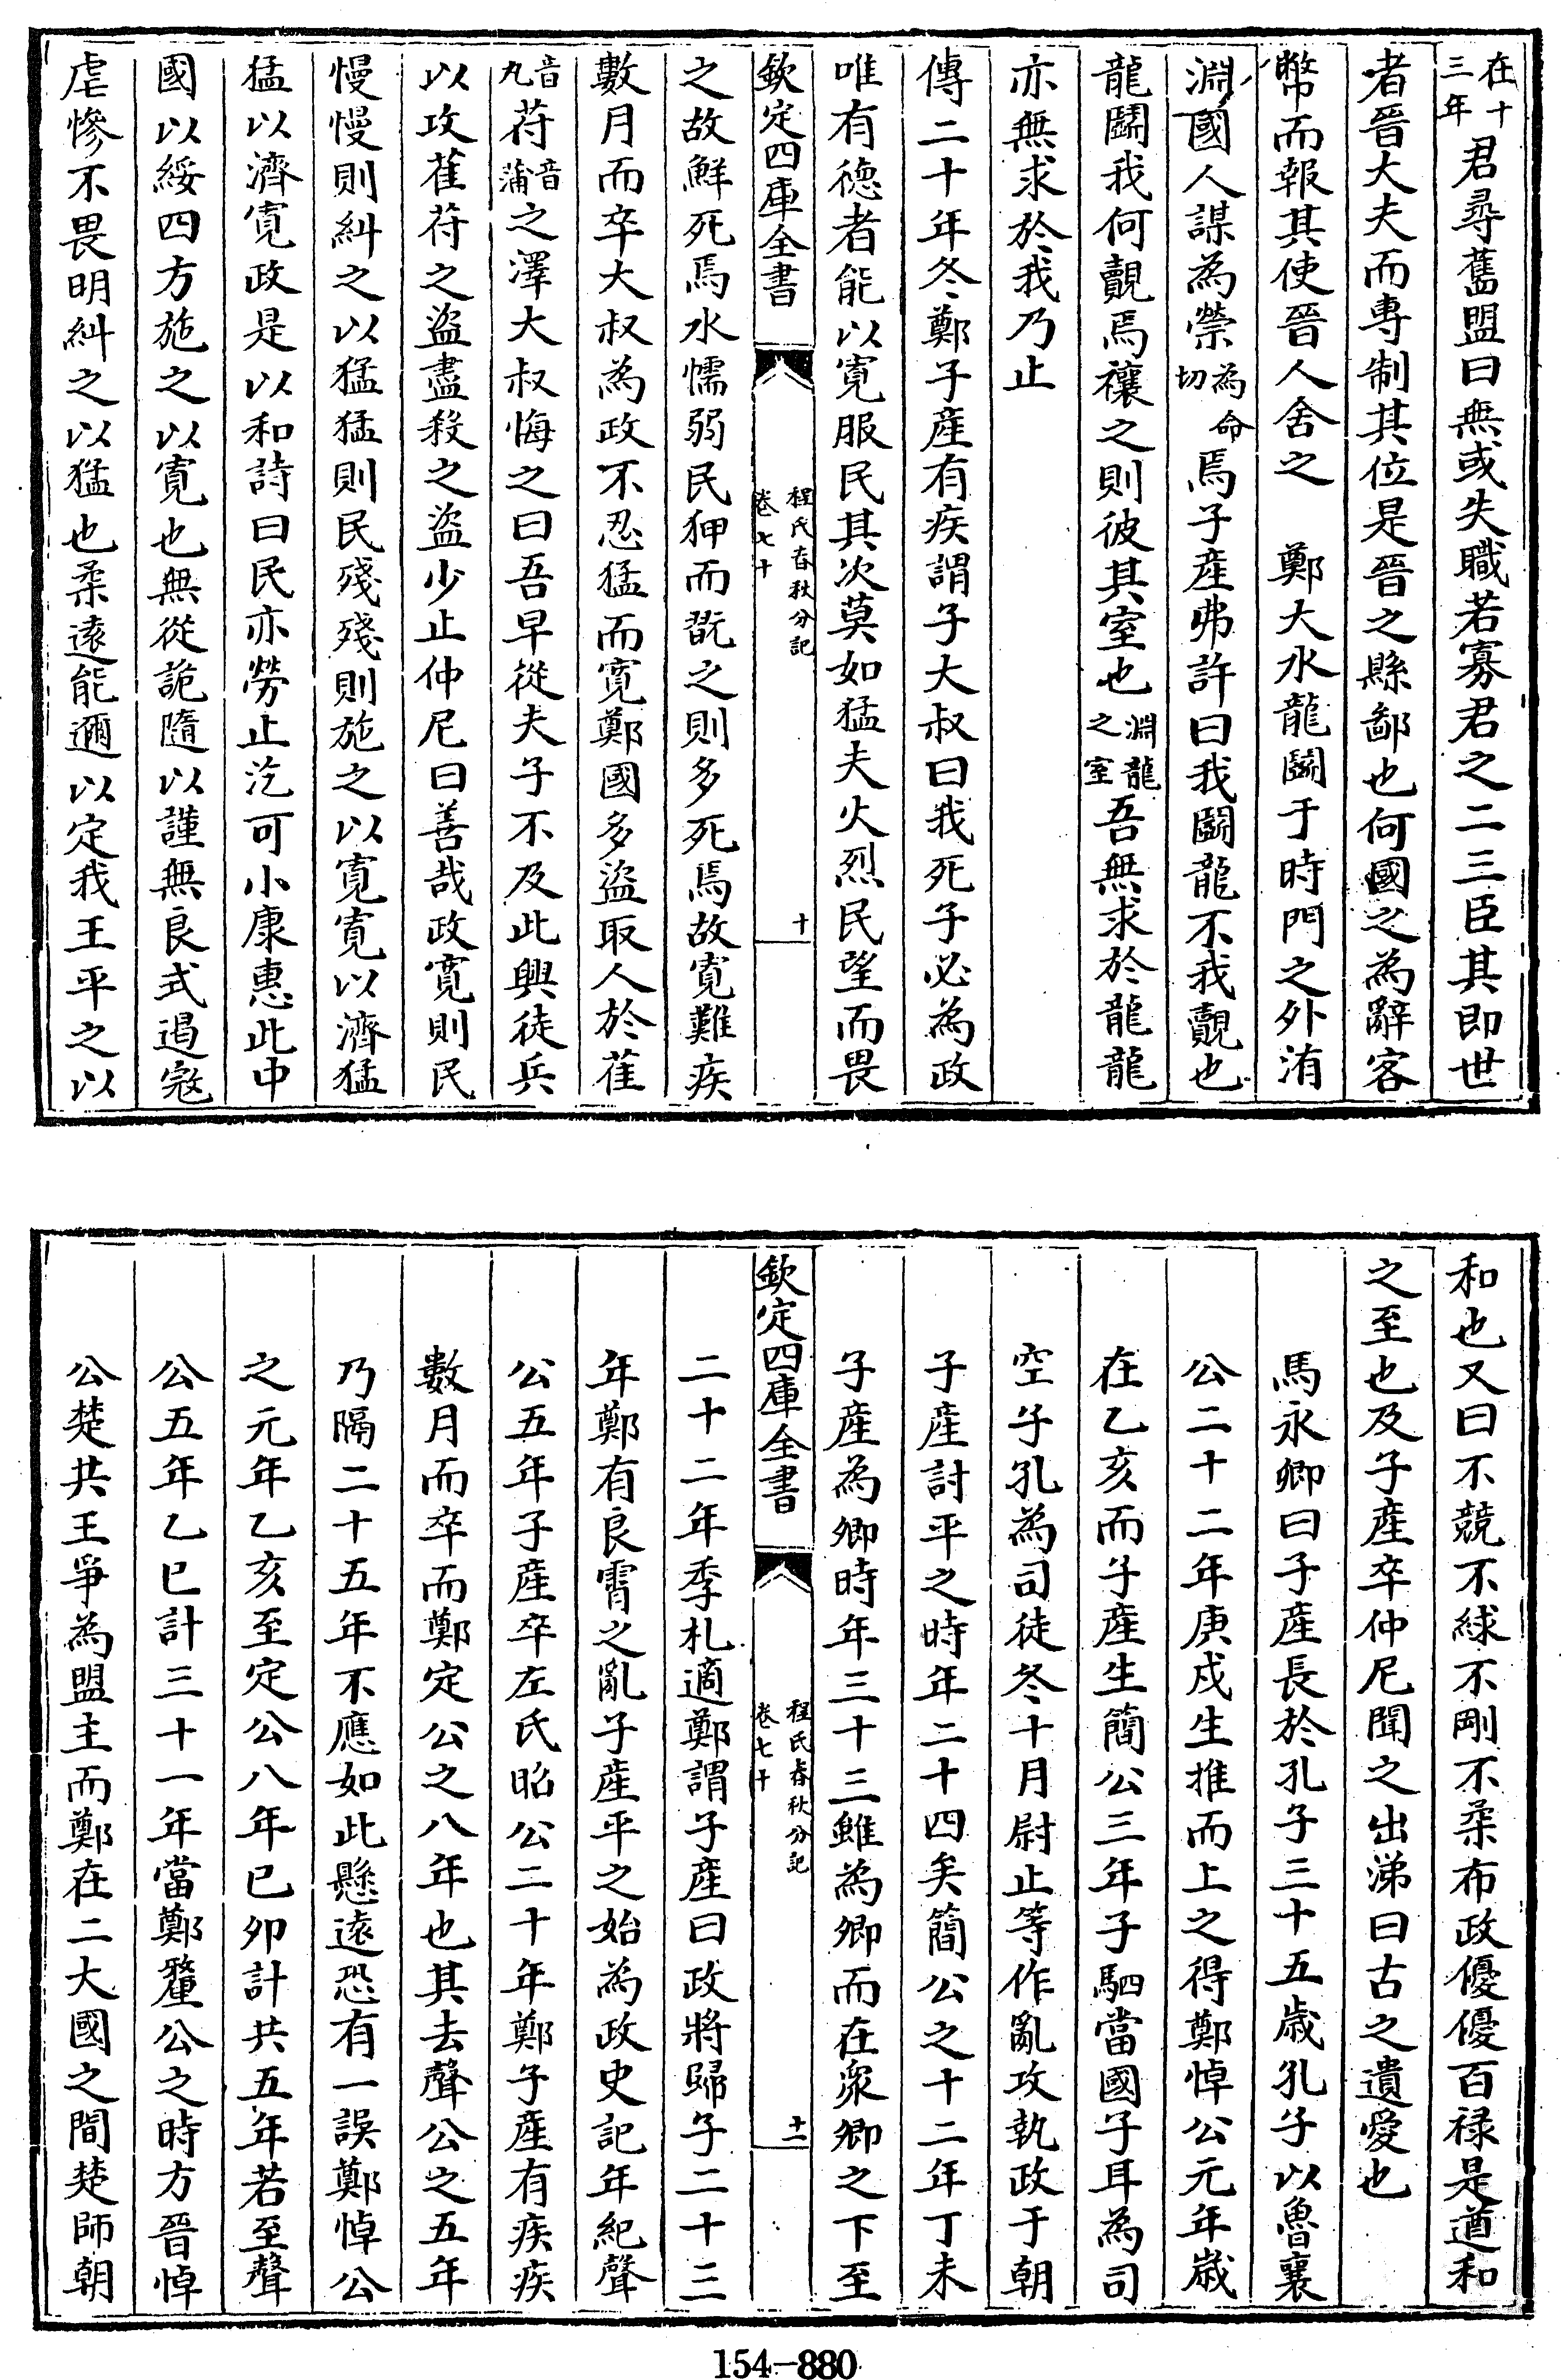 在十三年君尋舊盟曰無或失職若寡君之二三臣其即世
者晉大夫而專制其位是晉之縣鄙也何國之為辭客
幣而報其使晉人舍之　鄭大水龍鬬于時門之外洧
淵國人謀為禜為命切焉子產弗許曰我鬬龍不我覿也
龍鬬我何覿焉禳之則彼其室也淵龍之室吾無求於龍龍
亦無求於我乃止
傳二十年冬鄭子產有疾謂子大叔曰我死子必為政
唯有德者能以寛服民其次莫如猛夫火烈民望而畏
欽定四庫全書
程氏春秋分記
卷七十
十
之故鮮死焉水懦弱民狎而翫之則多死焉故寛難疾
數月而卒大叔為政不忍猛而寛鄭國多盜取人於萑
音丸苻音蒲之澤大叔悔之曰吾早從夫子不及此興徒兵
以攻萑苻之盜盡殺之盜少止仲尼曰善哉政寛則民
慢慢則糾之以猛猛則民殘殘則施之以寛寛以濟猛
猛以濟寛政是以和詩曰民亦勞止汔可小康惠此中
國以綏四方施之以寛也無從詭隨以謹無良式遏寇
虐慘不畏明糾之以猛也柔遠能邇以定我王平之以
和也又曰不競不絿不剛不柔布政優優百祿是遒和
之至也及子產卒仲尼聞之出涕曰古之遺愛也
馬永卿曰子產長於孔子三十五歲孔子以魯襄
公二十二年庚戍生推而上之得鄭悼公元年歲
在乙亥而子產生簡公三年子駟當國子耳為司
空子孔為司徒冬十月尉止等作亂攻執政于朝
子產討平之時年二十四矣簡公之十二年丁未
子產為卿時年三十三雖為卿而在衆卿之下至
欽定四庫全書
程氏春秋分記
卷七十
十一
二十二年季札適鄭謂子產曰政將歸子二十三
年鄭有良霄之亂子產平之始為政史記年紀聲
公五年子產卒左氏昭公二十年鄭子產有疾疾
數月而卒而鄭定公之八年也其去聲公之五年
乃隔二十五年不應如此懸遠恐有一誤鄭悼公
之元年乙亥至定公八年己卯計共五年若至聲
公五年乙巳計三十一年當鄭釐公之時方晉悼
公楚共王爭為盟主而鄭在二大國之間楚師朝
154-880